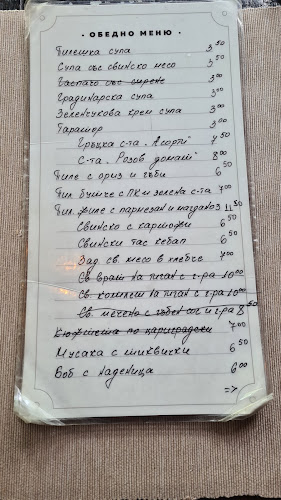 · ОБЕДНО МЕНЮ ·
Пилешка супа 3⁵⁰
Супа със свинско месо 3⁵⁰
Гаспачо със сирене 3⁰⁰
Градинарска супа 3⁰⁰
Зеленчукова крем супа 3⁰⁰
Таратор 3⁰⁰
Гръцка с-та „Асорти" 7⁵⁰
С-та „Розов домат" 8⁰⁰
Филе с ориз и гъби 6⁵⁰
Пил. бутче с ПК и зелена с-та 7⁰⁰
Пил. филе с пармезан и магданоз 11⁵⁰
Свинско с картофи 6⁵⁰
Свински тас кебап 6⁵⁰
Зад. св. месо в хлебче 7⁰⁰
Св. врат на тиган с г-ра 10⁰⁰
Св. комплет на тиган с г-ра 10⁰⁰
Св. мечено с гъбен сос и гра 8⁵⁰
Кюфтета по цариградски 7⁰⁰
Мусака с тиквички 6⁵⁰
Боб с наденица 6⁰⁰
=>